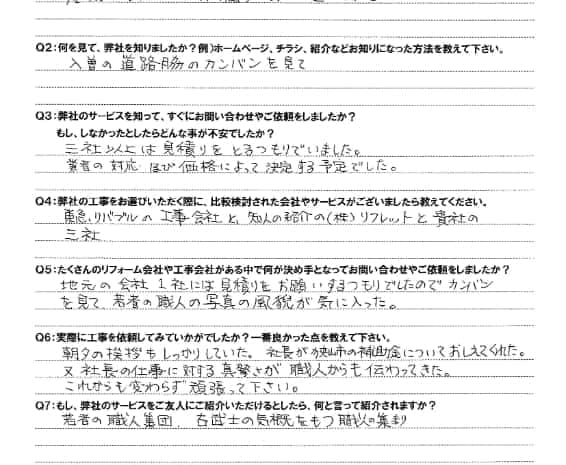 Q2：何を見て、弊社を知りましたか？例）ホームページ、チラシ、紹介などお知りになった方法を教えて下さい。
入曽の道路脇のカンバンを見て
Q3：弊社のサービスを知って、すぐにお問い合わせやご依頼をしましたか？
もし、しなかったとしたらどんな事が不安でしたか？
三社以上は見積りをとるつもりでいました。
業者の対応及び価格によって決定する予定でした。
Q4：弊社の工事をお選びいただく際に、比較検討された会社やサービスがございましたら教えてください。
東急リバブルの工事会社と、知人の紹介の(株)リフレットと貴社の
三社
Q5：たくさんのリフォーム会社や工事会社がある中で何が決め手となってお問い合わせやご依頼をしましたか？
地元の会社1社には見積りをお願いするつもりでしたのでカンバン
を見て、若者の職人の写真の風貌が気に入った。
Q6：実際に工事を依頼してみていかがでしたか？一番良かった点を教えて下さい。
朝夕の挨拶もしっかりしていた。社長が狭山市の補助金についておしえてくれた。
又社長の仕事に対する真摯さが職人からも伝わってきた。
これからも変わらず頑張って下さい。
Q7：もし、弊社のサービスをご友人にご紹介いただけるとしたら、何と言って紹介されますか？
若者の職人集団、古武士の気概をもつ職人の集まり